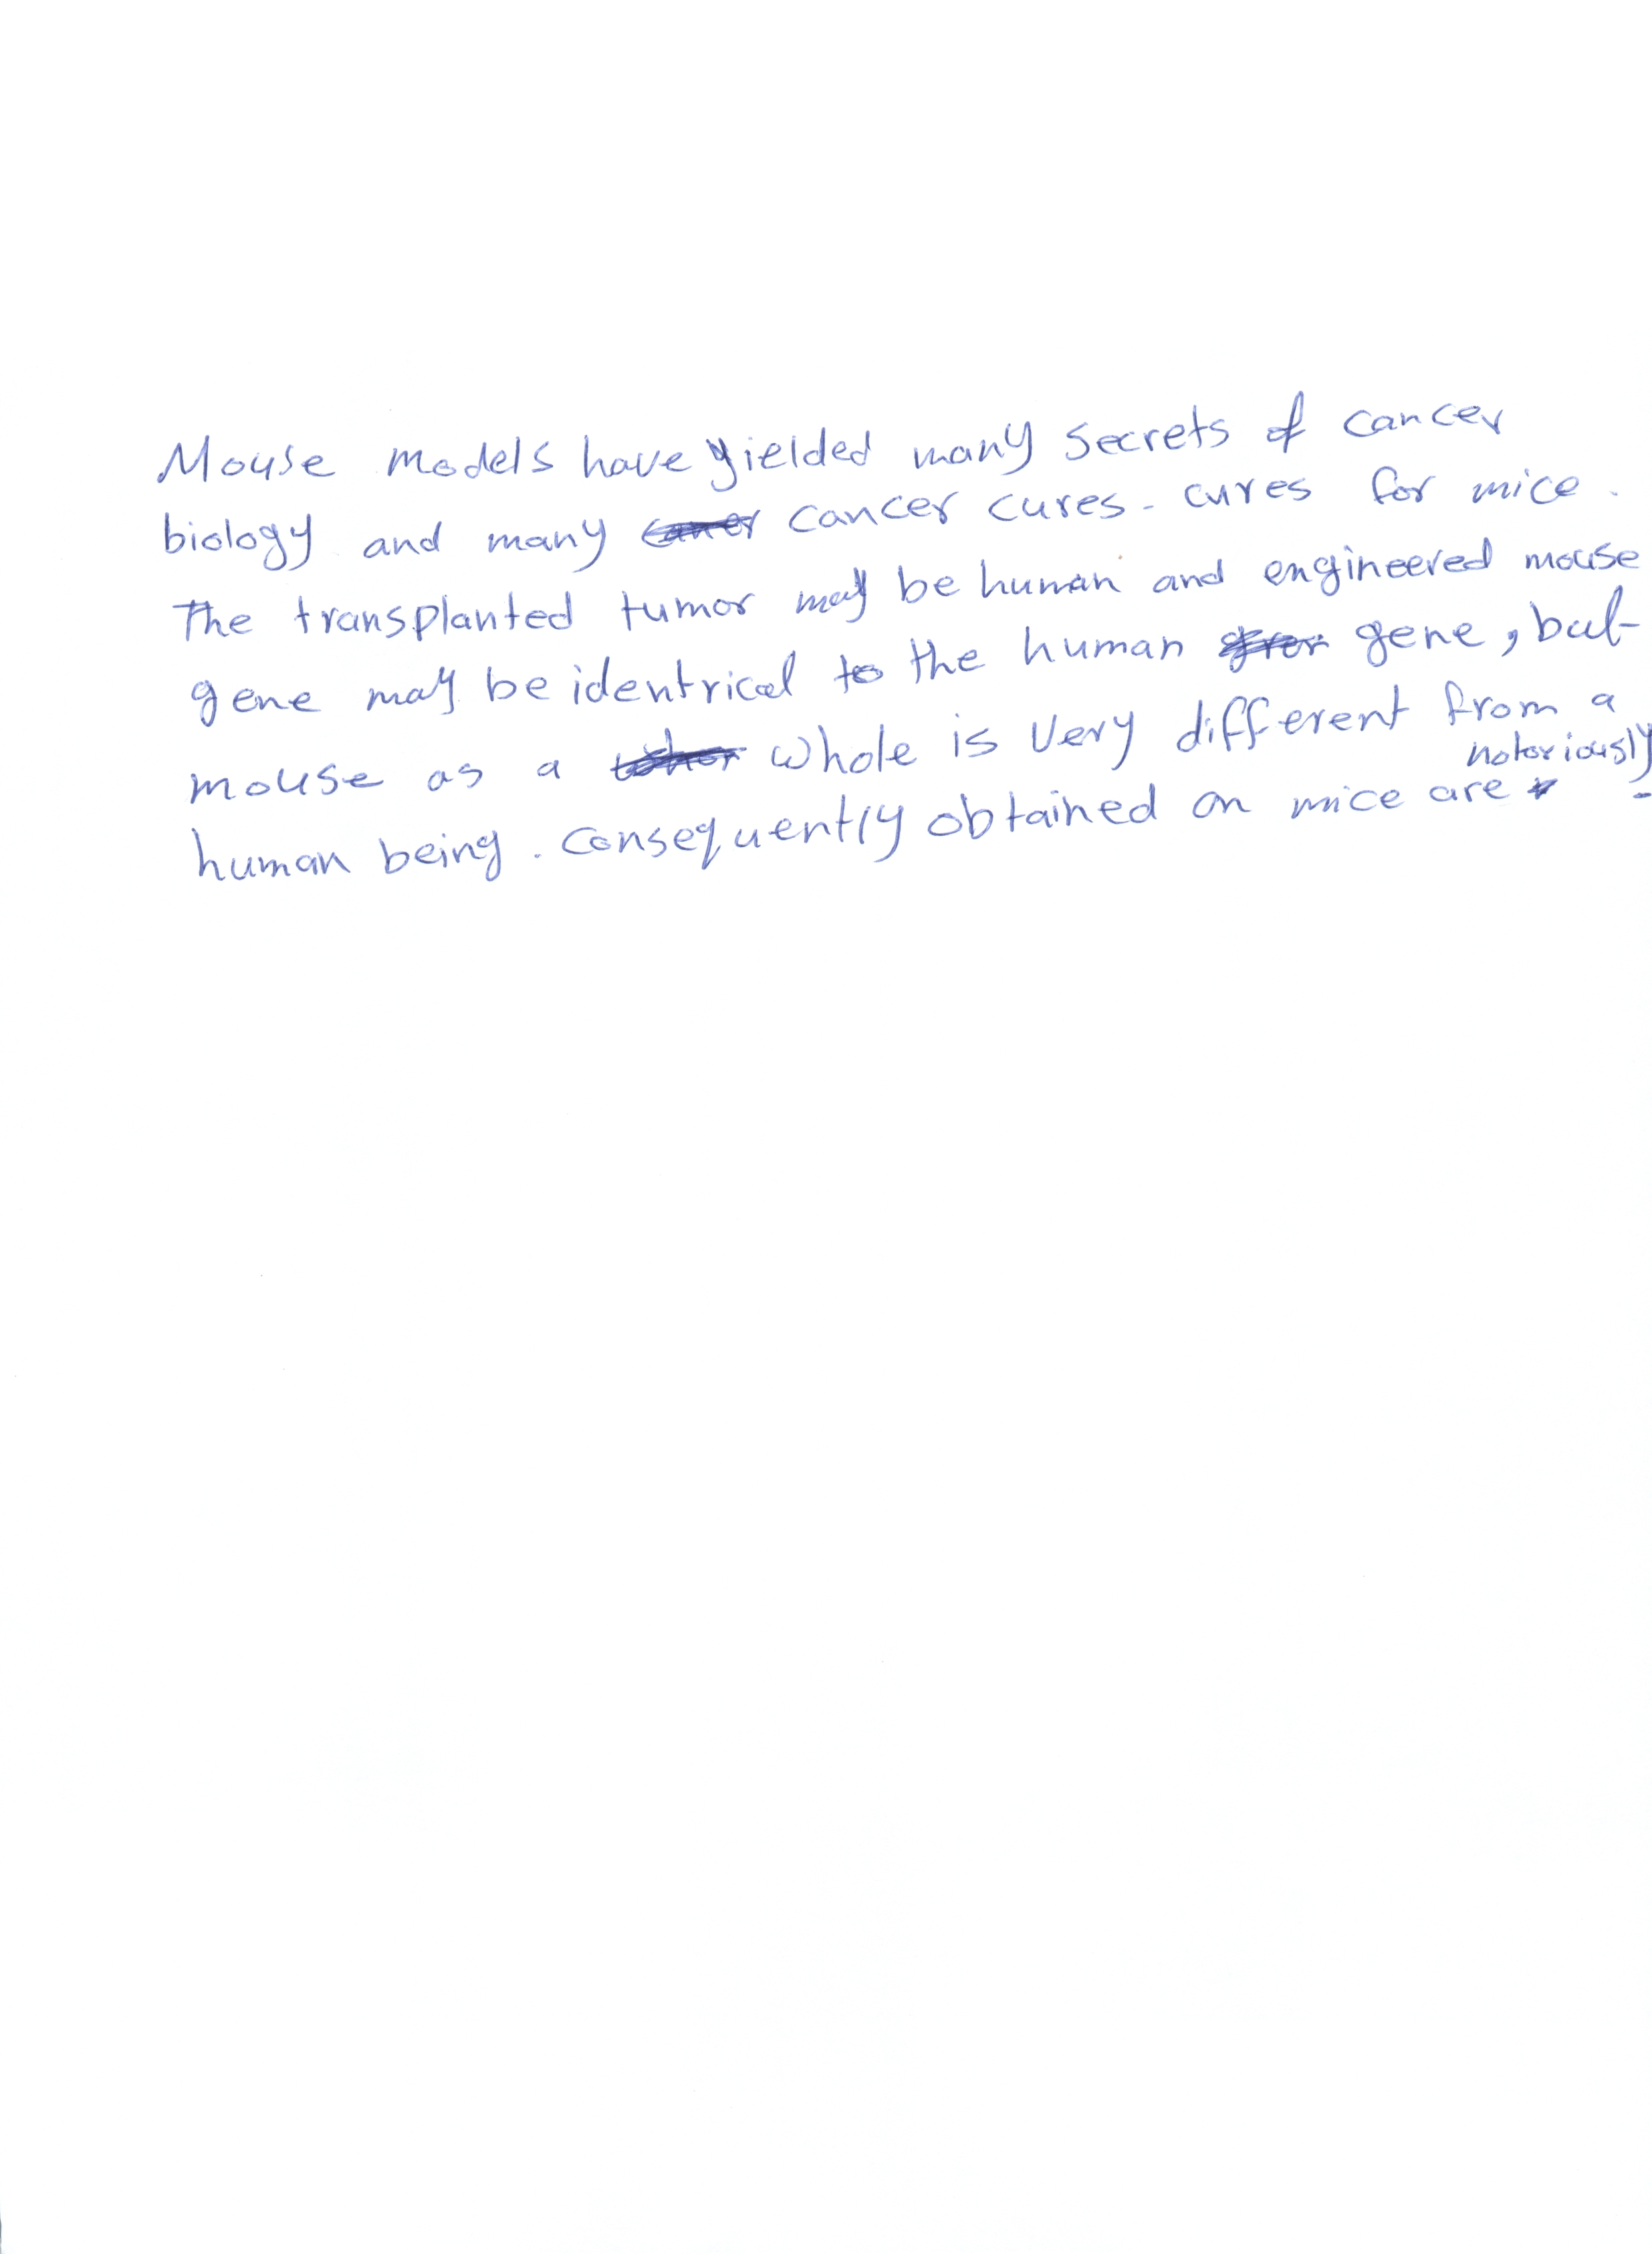 Mouse models have yielded many secrets of cancer
biology and many cancer cures - cures for mice.
The transplanted tumor may be human and engineered mouse
gene may be identrical to the human gene, but
mouse as a whole is very different from a
human being. Consequently obtained on mice are notoriously